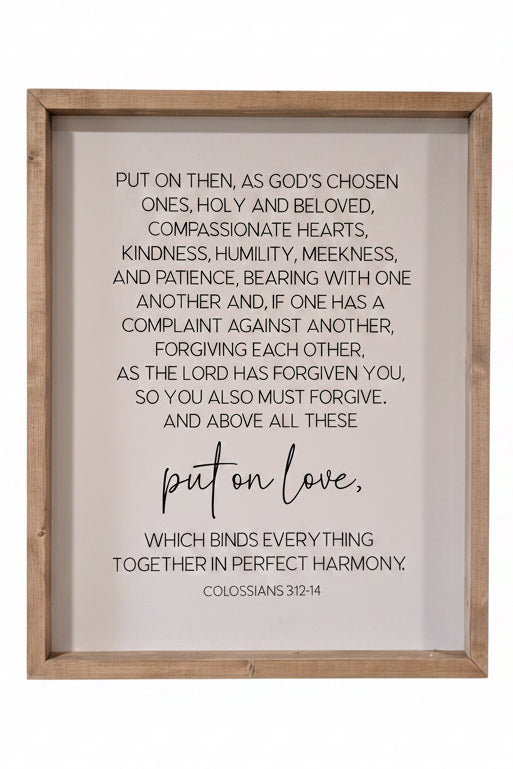 PUT ON THEN, AS GOD'S CHOSEN
ONES, HOLY AND BELOVED,
COMPASSIONATE HEARTS,
KINDNESS, HUMILITY, MEEKNESS,
AND PATIENCE, BEARING WITH ONE
ANOTHER AND, IF ONE HAS A
COMPLAINT AGAINST ANOTHER,
FORGIVING EACH OTHER,
AS THE LORD HAS FORGIVEN YOU,
SO YOU ALSO MUST FORGIVE.
AND ABOVE ALL THESE
put on love,
WHICH BINDS EVERYTHING
TOGETHER IN PERFECT HARMONY.
COLOSSIANS 3:12-14